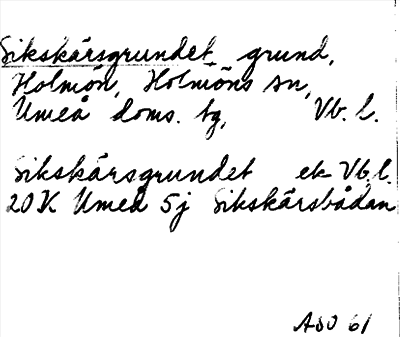 Sikskärsgrundet, grund,
Holmön, Holmöns sn,
Umeå doms. tg, Vb. l.
Sikskärsgrundet ek Vb. l.
20 K Umeå 5j Sikskärsbådan
ASO 61